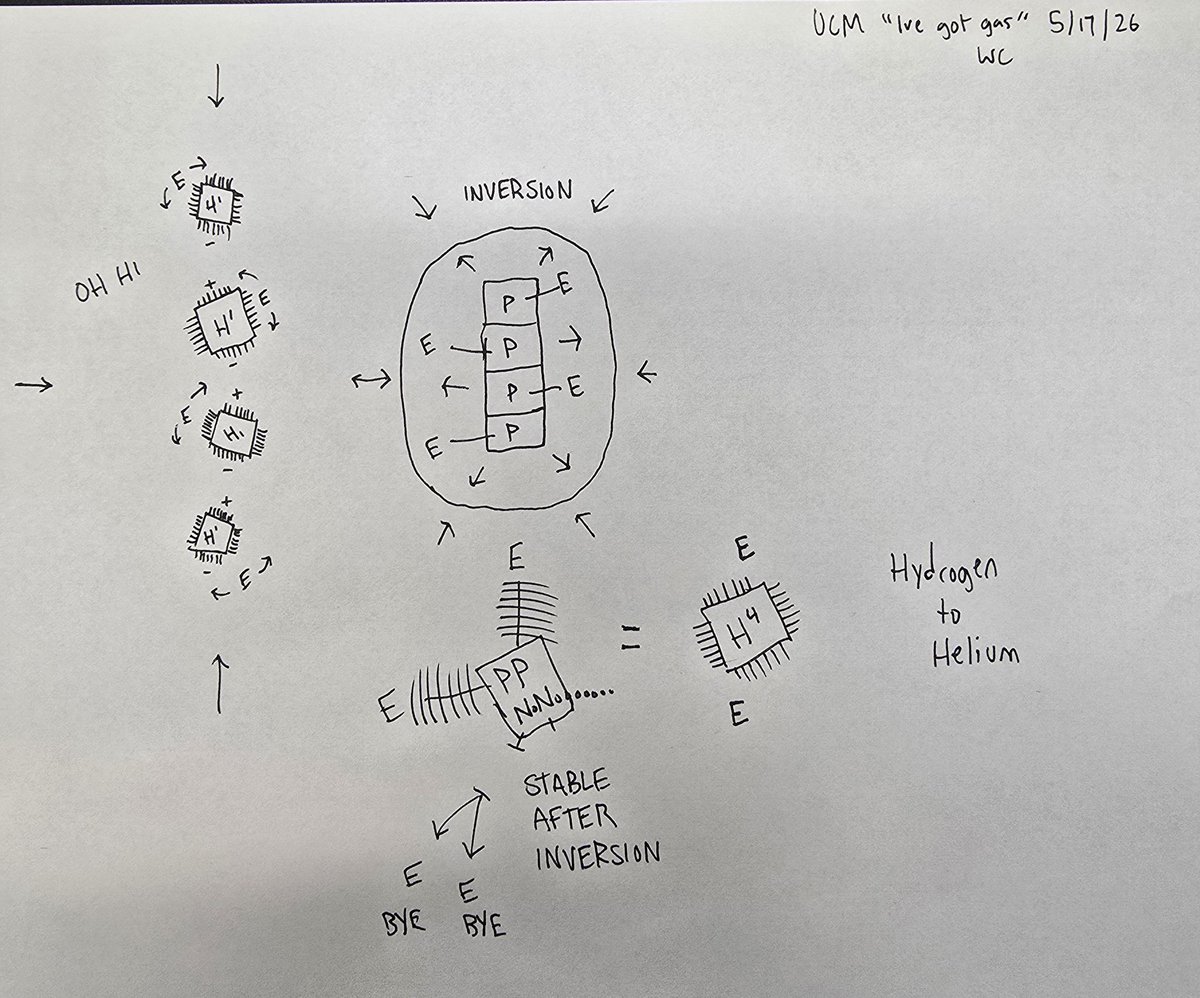 UCM "Ive got gas" 5/17/26
WC
E
H¹
-
OH HI
+
E
H¹
-
E
+
H¹
-
+
H¹
-
E
INVERSION
P E
E P
P E
E P
E
E PP
N₀N₀
=
E
H⁴
E
Hydrogen
to
Helium
STABLE
AFTER
INVERSION
E E
BYE BYE